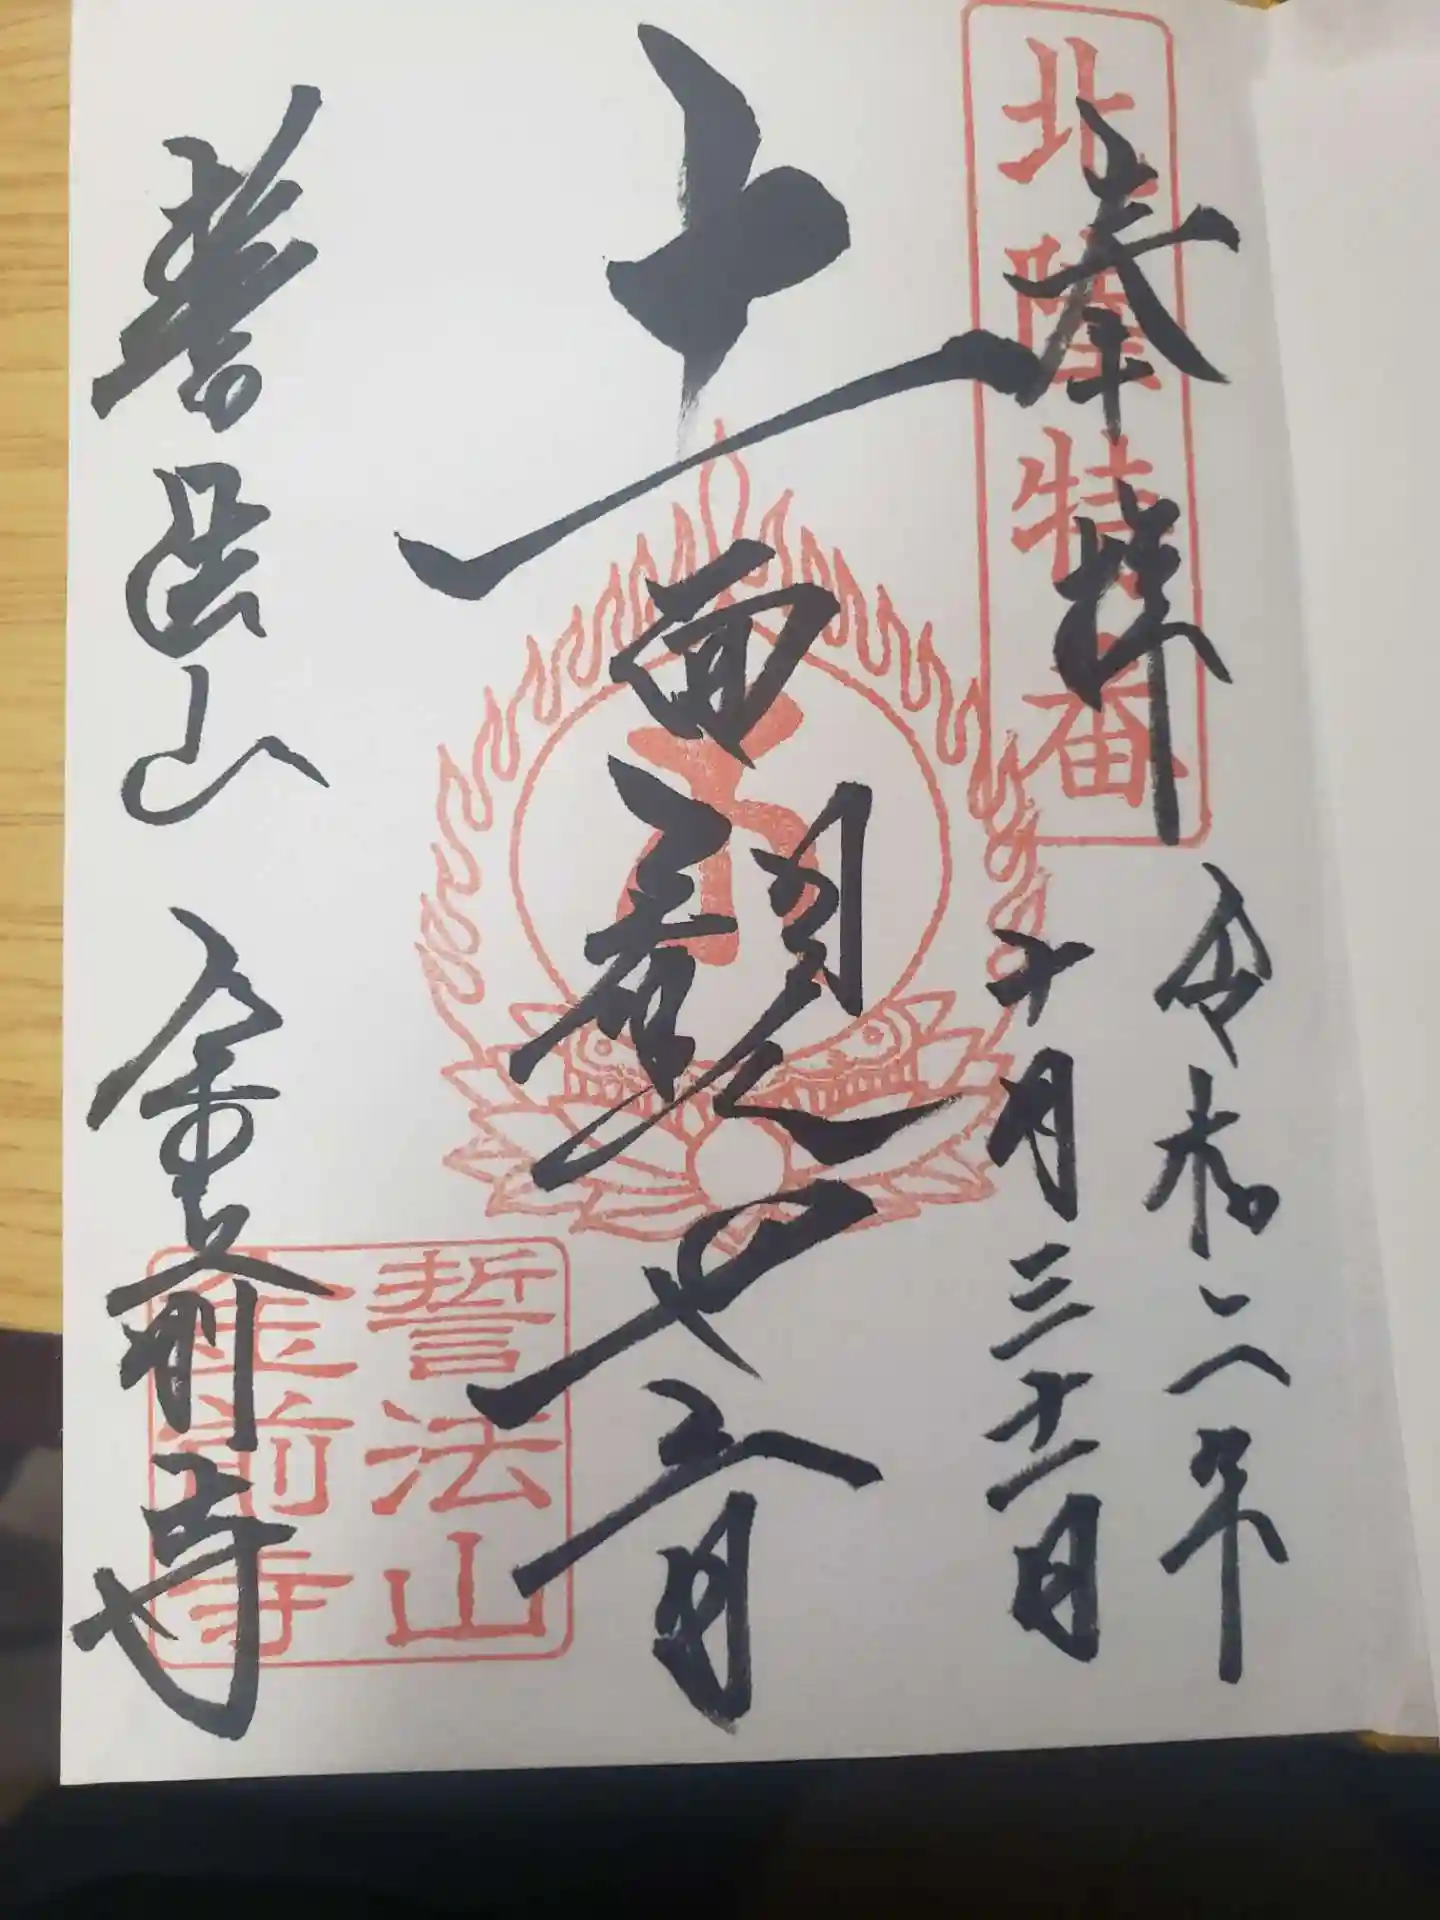 奉拝
北陸特番
令和二年
十月三十一日
十一面観世音
誓法山 金前寺
誓法山
金前寺